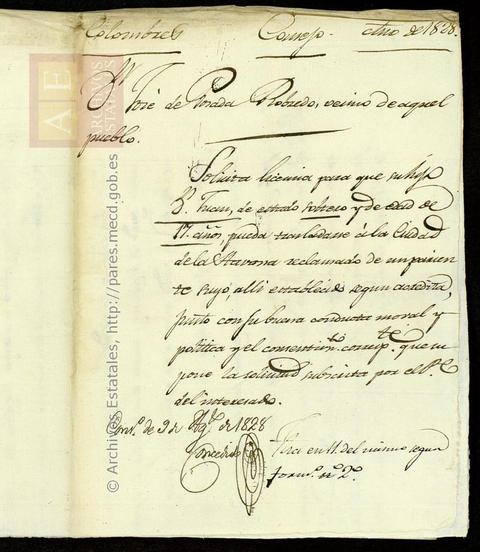 Colombres Consejo. año de 1828.
Dn. José de Posada Robredo, vecino de aquel
pueblo.
Solicita licencia para que su hijo
D. Juan, de estado soltero y de edad de
17 años, pueda trasladarse á la Ciudad
de la Havana reclamado de un parien
te suyo, alli establecido segun acredita,
junto con su buena conducta moral y
politica y el consentimto. corresp.te que su
pone la solicitud subscrita por el P.e
del interesado.
de 9 de Ag.to de 1828
Concedido
Fha en 11. del mismo segun
form.o n.o 2.o
© Archivos Estatales, http://pares.mecd.gob.es
ARCHIVOS
ESTATALES
A E